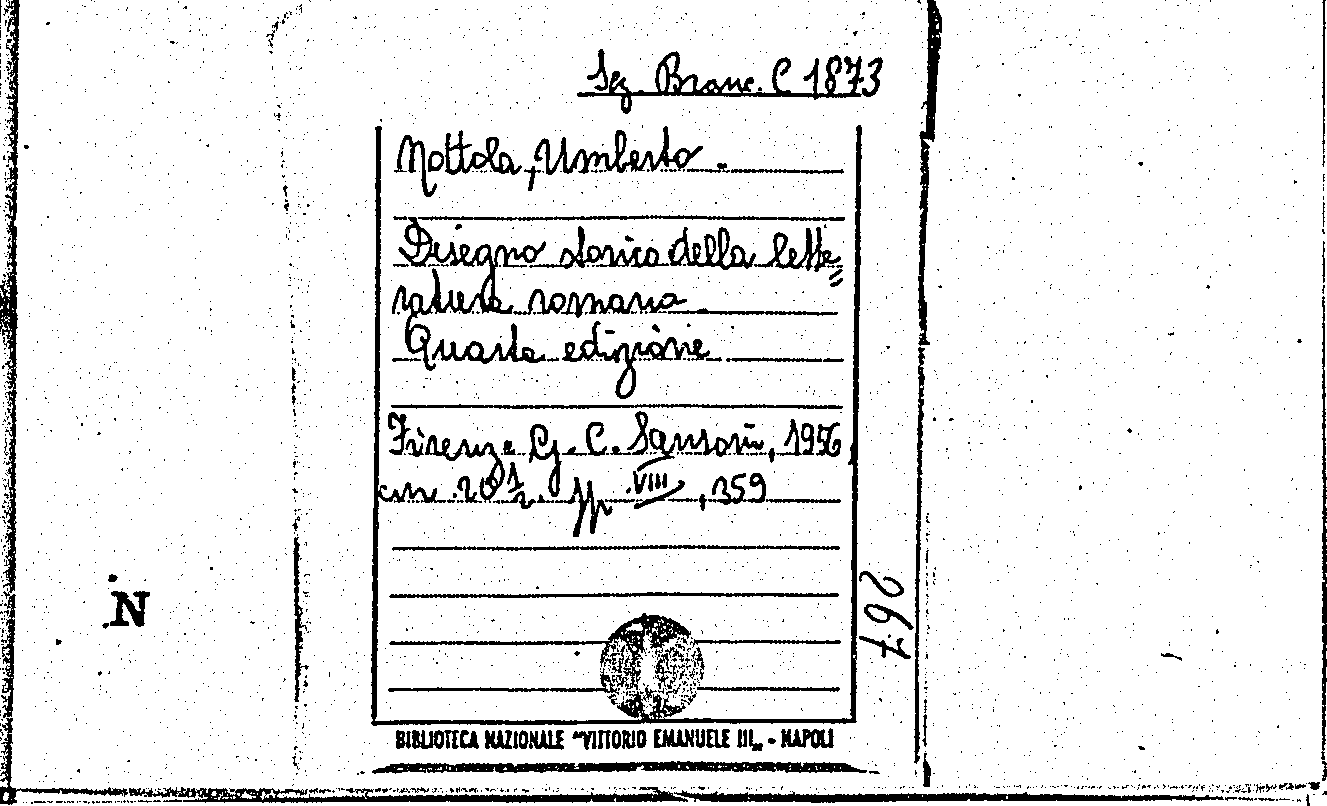 Sez. Branc. C 1873
Nottola, Umberto.
Disegno storico della lette=
ratura romana.
Quarta edizione
Firenze G. C. Sansoni, 1956,
cm. 20 1/2. pp. VIII, 359
267
N
BIBLIOTECA NAZIONALE "VITTORIO EMANUELE III„ - NAPOLI